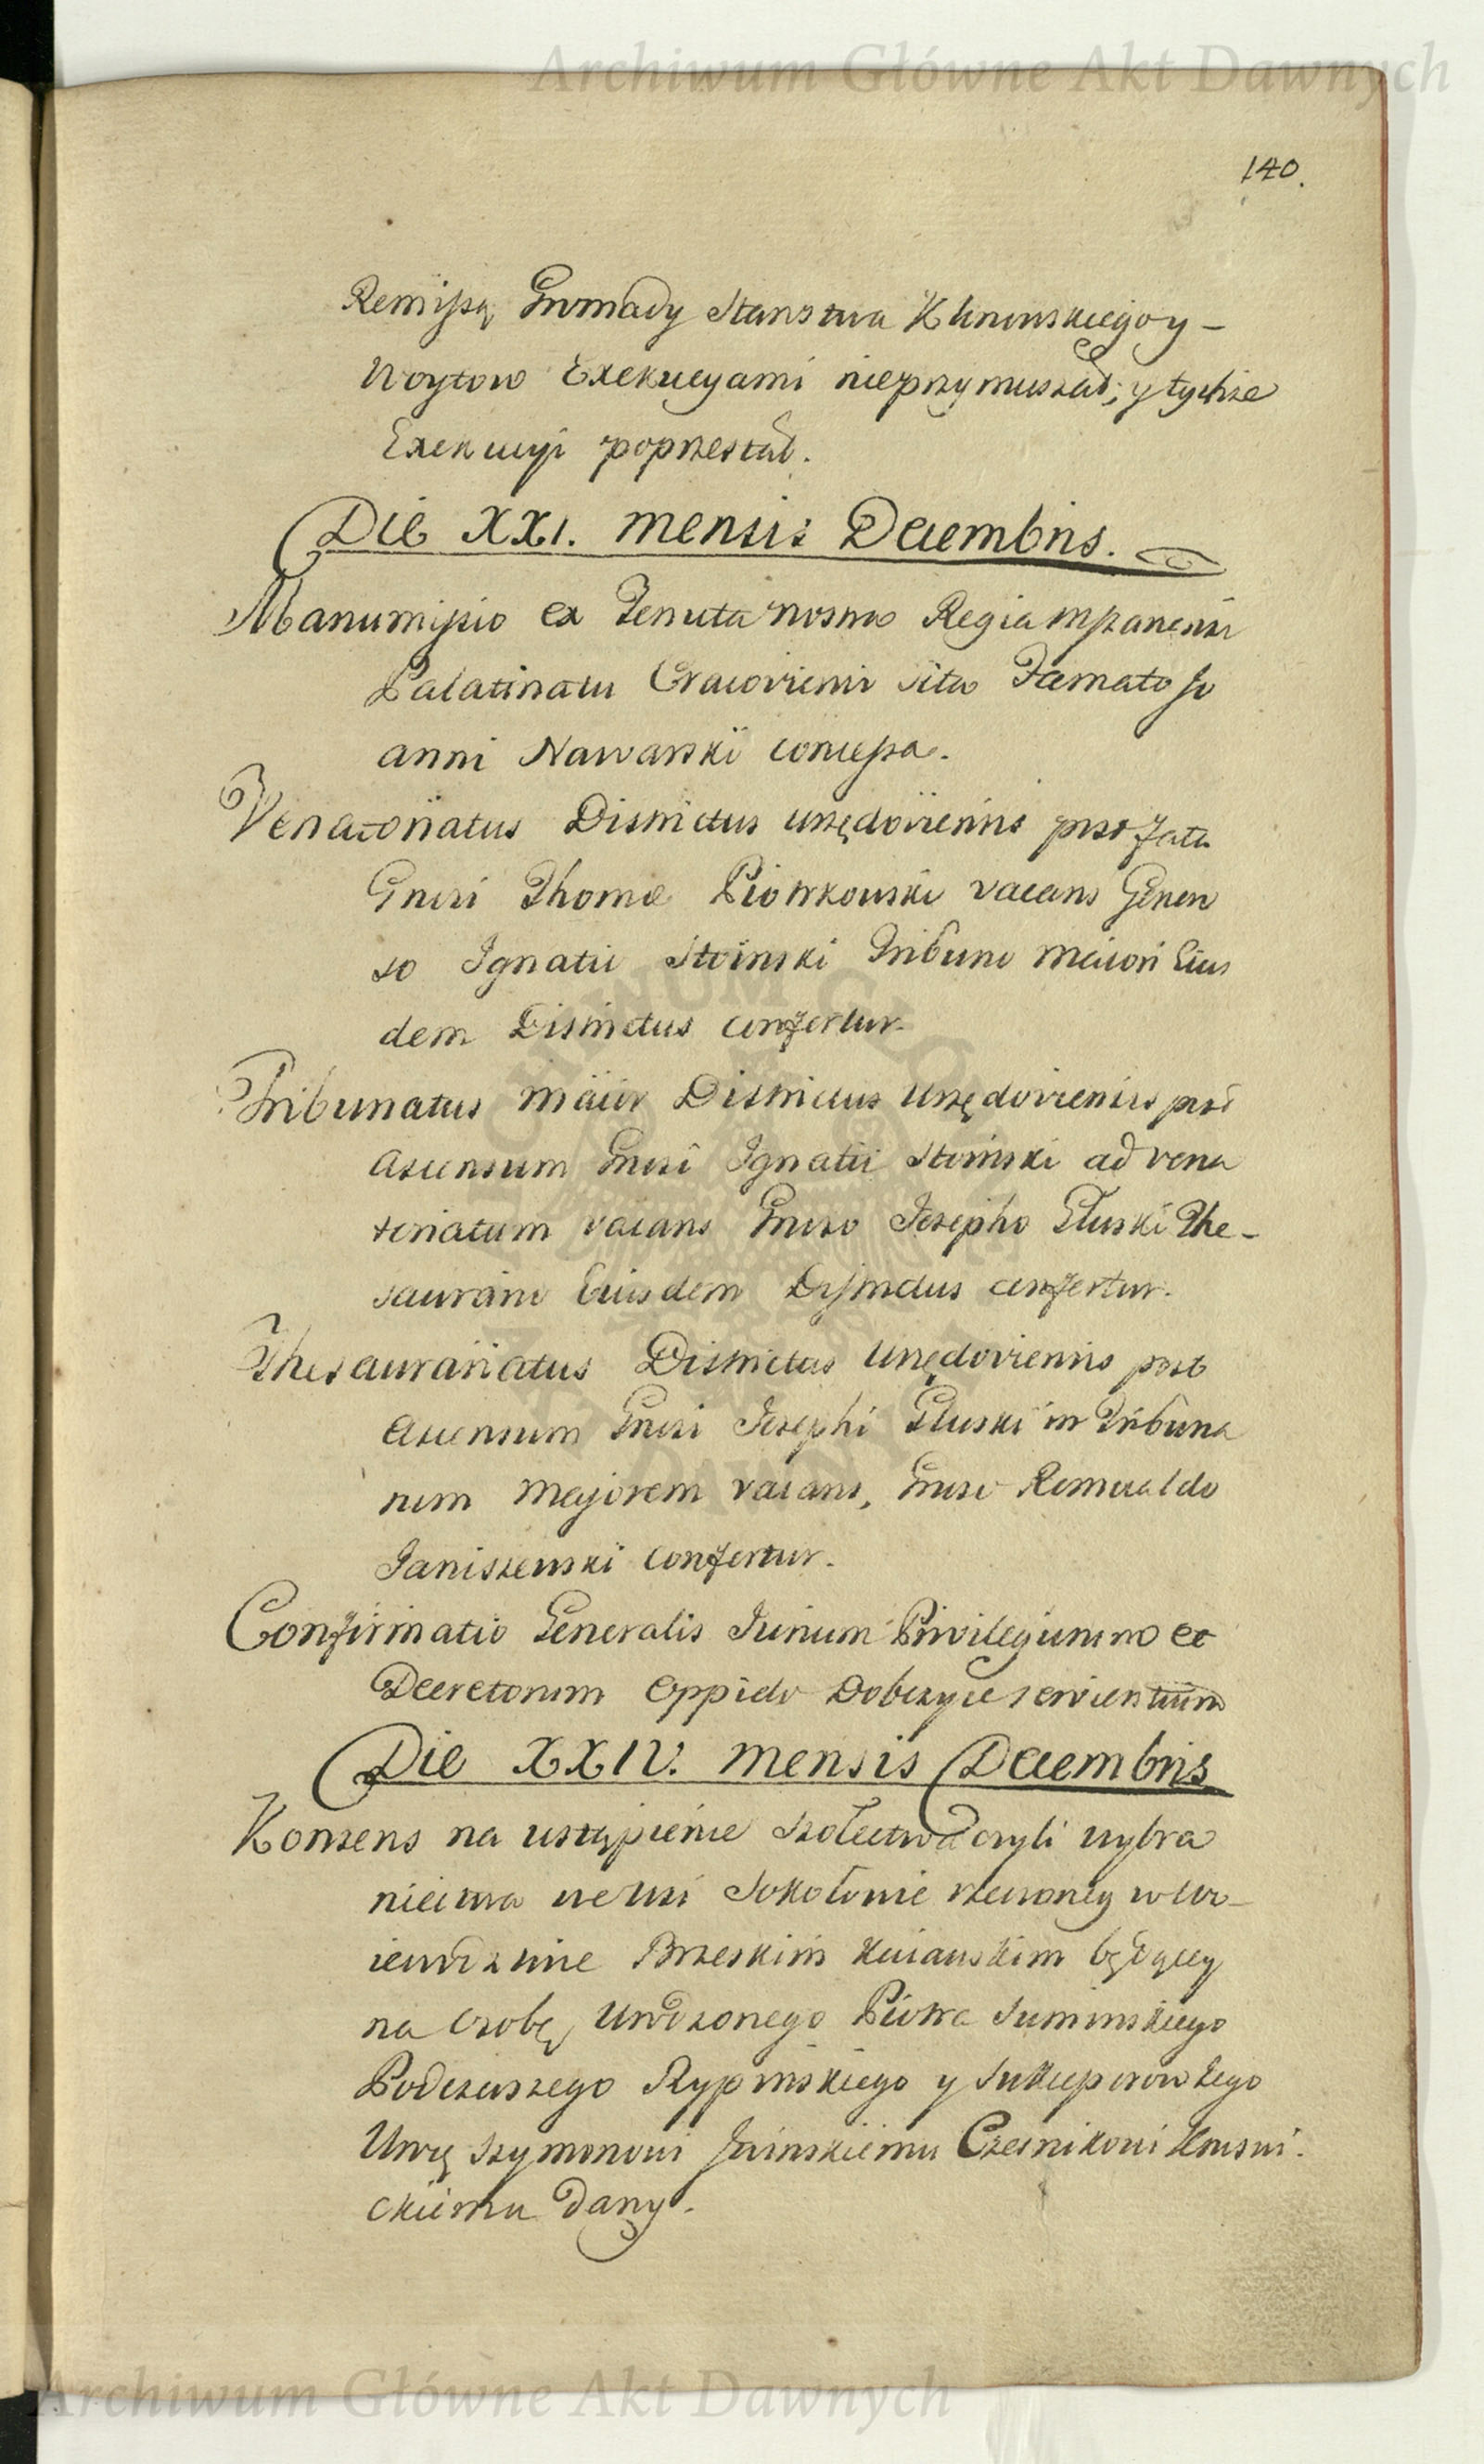 Archiwum Główne Akt Dawnych
140.
Remissą Gromady Starostwa Klonowskiego y –
Woytow Exekucyami nieprzymuszał; y tychże
Exekucyi poprzestał.
Die XXI. mensis Decembris.
Manumissio ex Tenuta nostra Regia
Palatinatu Cracoviensi sita Famato Jo
anni Nawarski concessa.
Venatoriatus Districtus Urzędoviensis post fata
Gnrsi Thomæ Piotrkowski vacans Gener
so Ignatii Stoinski Tribuno maiori Eius
dem Districtus confertur.
Tribunatus maior Districtus Urzędoviensis post
ascensum Gnrsi Ignatii Stoinski ad vena
toriatum vacans Gnrso Josepho Głuski The-
saurario Eiusdem Districtus confertur.
Thesaurariatus Districtus Urzędoviensis post
ascensum Gnrsi Josephi Głuski in Tribuna
num majorem vacans, Gnrso Romualdo
Janiszewski confertur.
Confirmatio Generalis Jurium Privilegiorum et
Decretorum Oppido Dobczyce servientium
Die XXIV. mensis Decembris
Konsens na ustąpienie Szołectwa czyli wybra
niectwa we wsi Sokołowie rzeczoney w Wo-
iewodztwie Brzeskim Kuiawskim będącey
na osobę Urodzonego Piotra Suminskiego
Podczaszego Rypinskiego y Sukcessorow Jego
Uro Szymonowi Czesnikowi
ckiemu Dany.
Archiwum Główne Akt Dawnych